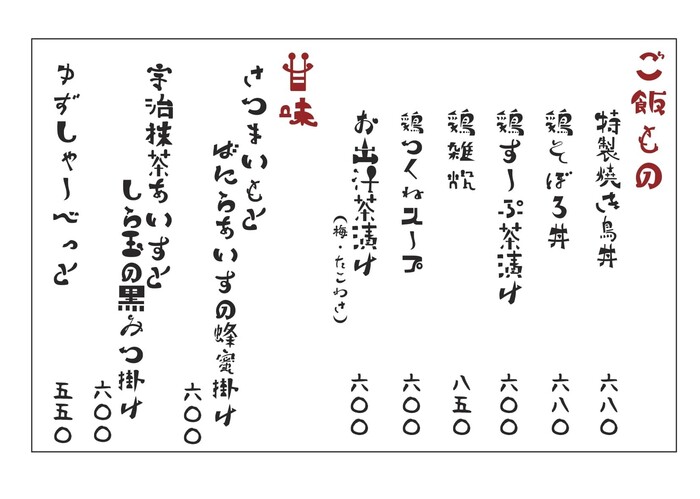 ご飯もの
特製焼き鳥丼
六八〇
鶏そぼろ丼
六八〇
鶏すーぷ茶漬け
六〇〇
鶏雑炊
八五〇
鶏つくねスープ
六〇〇
お出汁茶漬け
(梅・たこわさ)
六〇〇
甘味
さつまいもと
ばにらあいすの蜂蜜掛け
六〇〇
宇治抹茶あいすと
しら玉の黒みつ掛け
六〇〇
ゆずしゃーべっと
五五〇